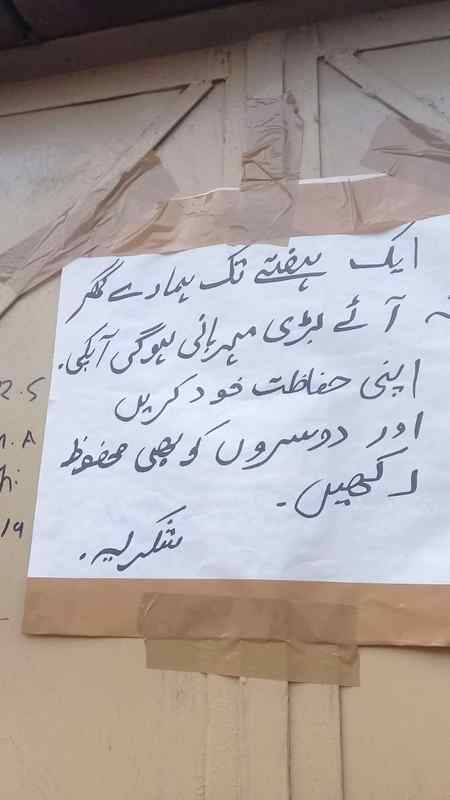 ایک ہفتے تک ہمارے گھر
نہ آئے بڑی مہربانی ہوگی آپکی.
اپنی حفاظت خود کریں
اور دوسروں کو بھی محفوظ
رکھیں -
شکریہ.
R.S
M.A